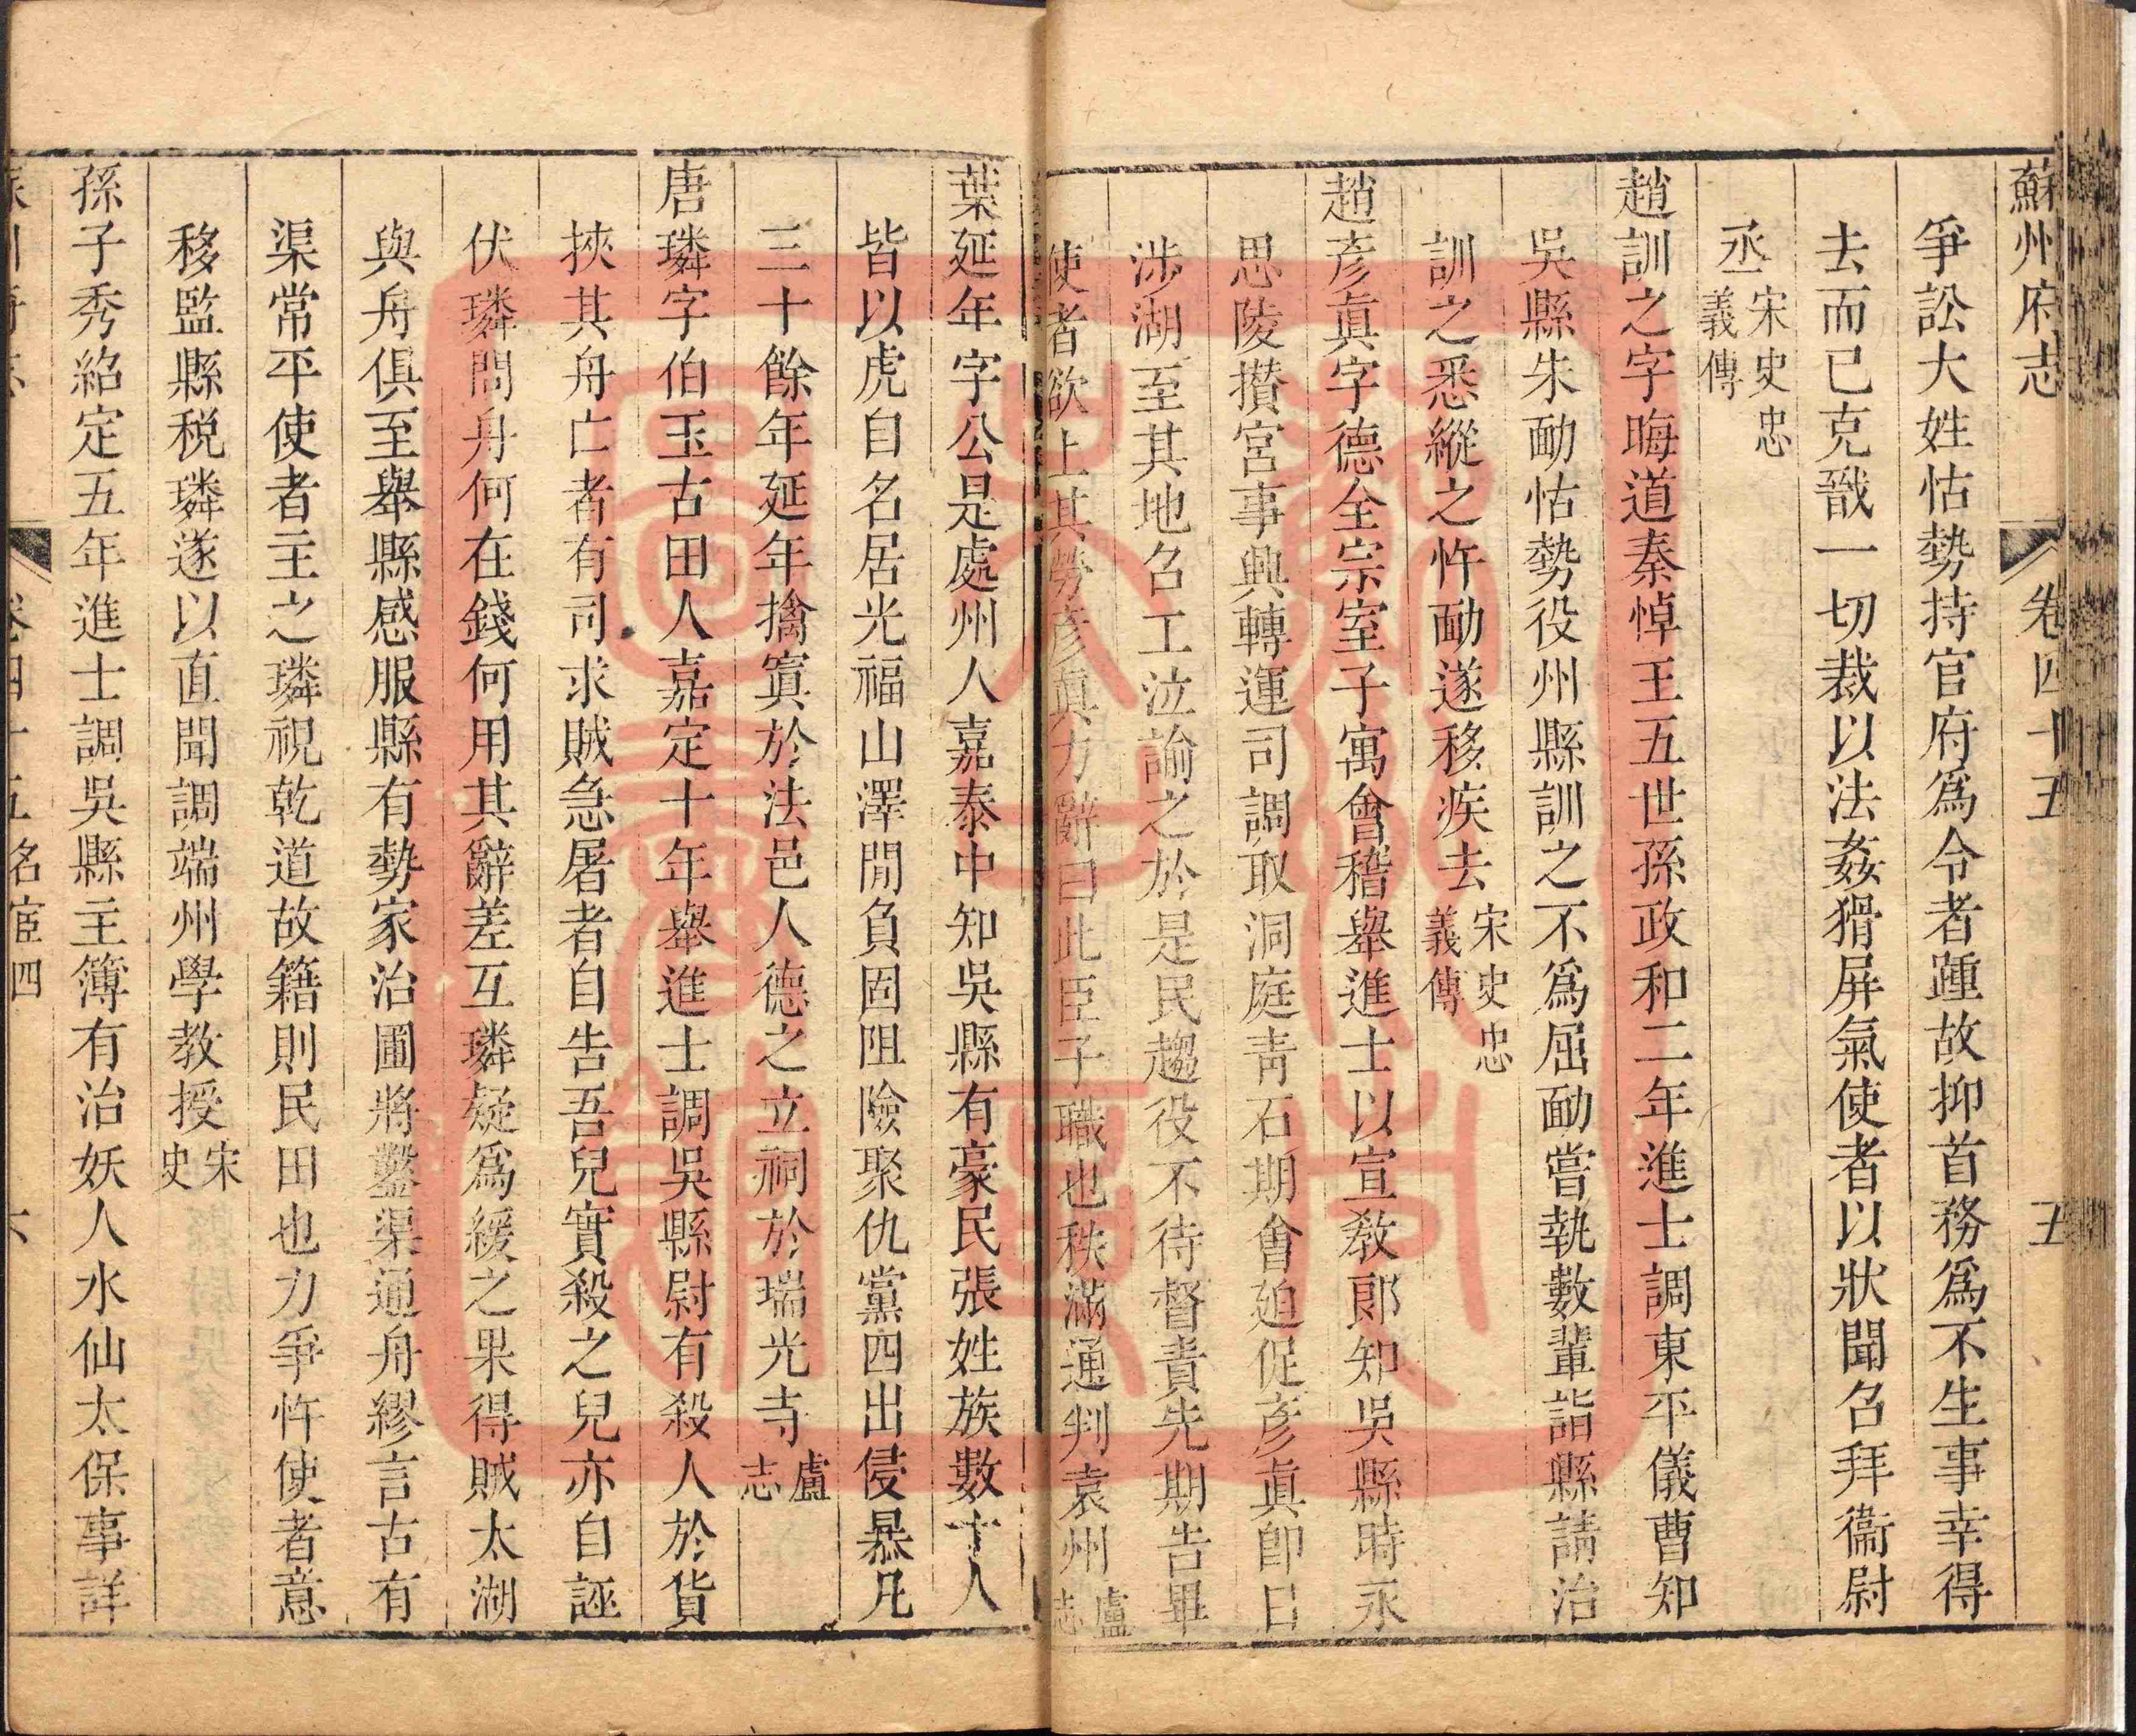 蘇州府志 卷四十五 五
爭訟大姓怙勢持官府爲令者踵故抑首務爲不生事幸得
去而已克戩一切裁以法姦猾屏氣使者以狀聞召拜衞尉
丞宋史忠義傳
趙訓之字晦道秦悼王五世孫政和二年進士調東平儀曹知
吳縣朱勔怙勢役州縣訓之不爲屈勔嘗執數輩詣縣請治
訓之悉縱之忤勔遂移疾去宋史忠義傳
趙彥眞字德全宗室子寓會稽舉進士以宣敎郞知吳縣時永
思陵攅宮事興轉運司調取洞庭靑石期會廹促彥眞卽日
涉湖至其地召工泣諭之於是民趨役不待督責先期告畢
使者欲上其勞彥眞力辭曰此臣子職也秩滿通判袁州盧志
葉延年字公是處州人嘉泰中知吳縣有豪民張姓族數十人
皆以虎自名居光福山澤閒負固阻險聚仇黨四出侵暴凡
三十餘年延年擒寘於法邑人德之立祠於瑞光寺盧志
唐璘字伯玉古田人嘉定十年舉進士調吳縣尉有殺人於貨
挾其舟亡者有司求賊急屠者自告吾兒實殺之兒亦自誣
伏璘問舟何在錢何用其辭差互璘疑爲緩之果得賊太湖
與舟俱至舉縣感服縣有勢家治圃將鑿渠通舟繆言古有
渠常平使者主之璘視乾道故籍則民田也力爭忤使者意
移監縣稅璘遂以直聞調端州學教授宋史
孫子秀紹定五年進士調吳縣主簿有治妖人水仙太保事詳
卷四十五名宦四 六